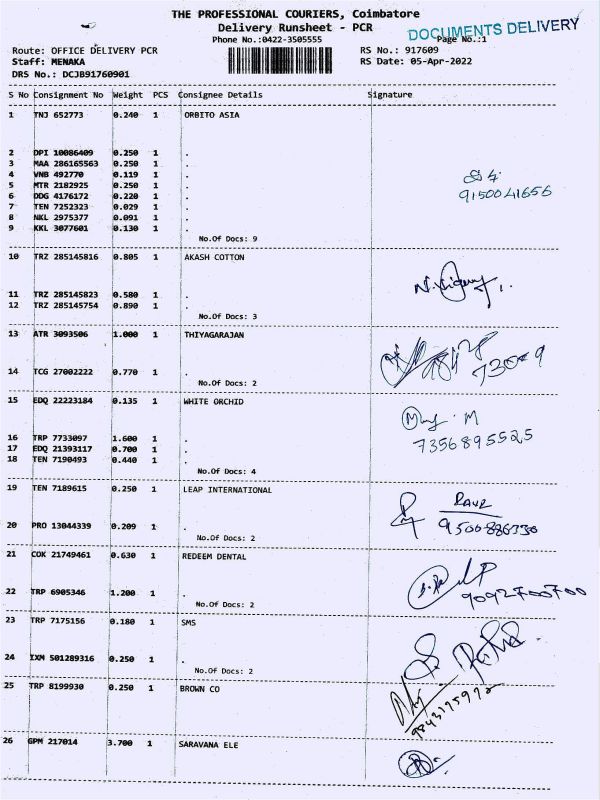 THE PROFESSIONAL COURIERS, Coimbatore
Delivery Runsheet - PCR
DOCUMENTS DELIVERY
Phone No.:0422-3505555
Page No.:1
Route: OFFICE DELIVERY PCR
RS No.: 917609
Staff: MENAKA
RS Date: 05-Apr-2022
DRS No.: DCJB91760901
S No Consignment No Weight PCS Consignee Details Signature
1 TNJ 652773 0.240 1 ORBITO ASIA
2 DPI 10086409 0.250 1 .
3 MAA 286165563 0.250 1 .
4 VNB 492770 0.119 1 .
5 MTR 2182925 0.250 1 .
6 DDG 4176172 0.220 1 .
7 TEN 7252323 0.029 1 .
8 NKL 2975377 0.091 1 .
9 KKL 3077601 0.130 1 .
9150041656
No.Of Docs: 9
10 TRZ 285145816 0.805 1 AKASH COTTON
11 TRZ 285145823 0.580 1 .
12 TRZ 285145754 0.890 1 .
No.Of Docs: 3
13 ATR 3093506 1.000 1 THIYAGARAJAN
14 TCG 27002222 0.770 1 .
No.Of Docs: 2
15 EDQ 22223184 0.135 1 WHITE ORCHID
16 TRP 7733097 1.600 1 .
17 EDQ 21393117 0.700 1 .
18 TEN 7190493 0.440 1 .
7356895525
No.Of Docs: 4
19 TEN 7189615 0.250 1 LEAP INTERNATIONAL
20 PRO 13044339 0.209 1 .
No.Of Docs: 2
21 COK 21749461 0.630 1 REDEEM DENTAL
22 TRP 6905346 1.200 1 .
9092700700
No.Of Docs: 2
23 TRP 7175156 0.180 1 SMS
24 IXM 501289316 0.250 1 .
No.Of Docs: 2
25 TRP 8199930 0.250 1 BROWN CO
26 GPM 217014 3.700 1 SARAVANA ELE